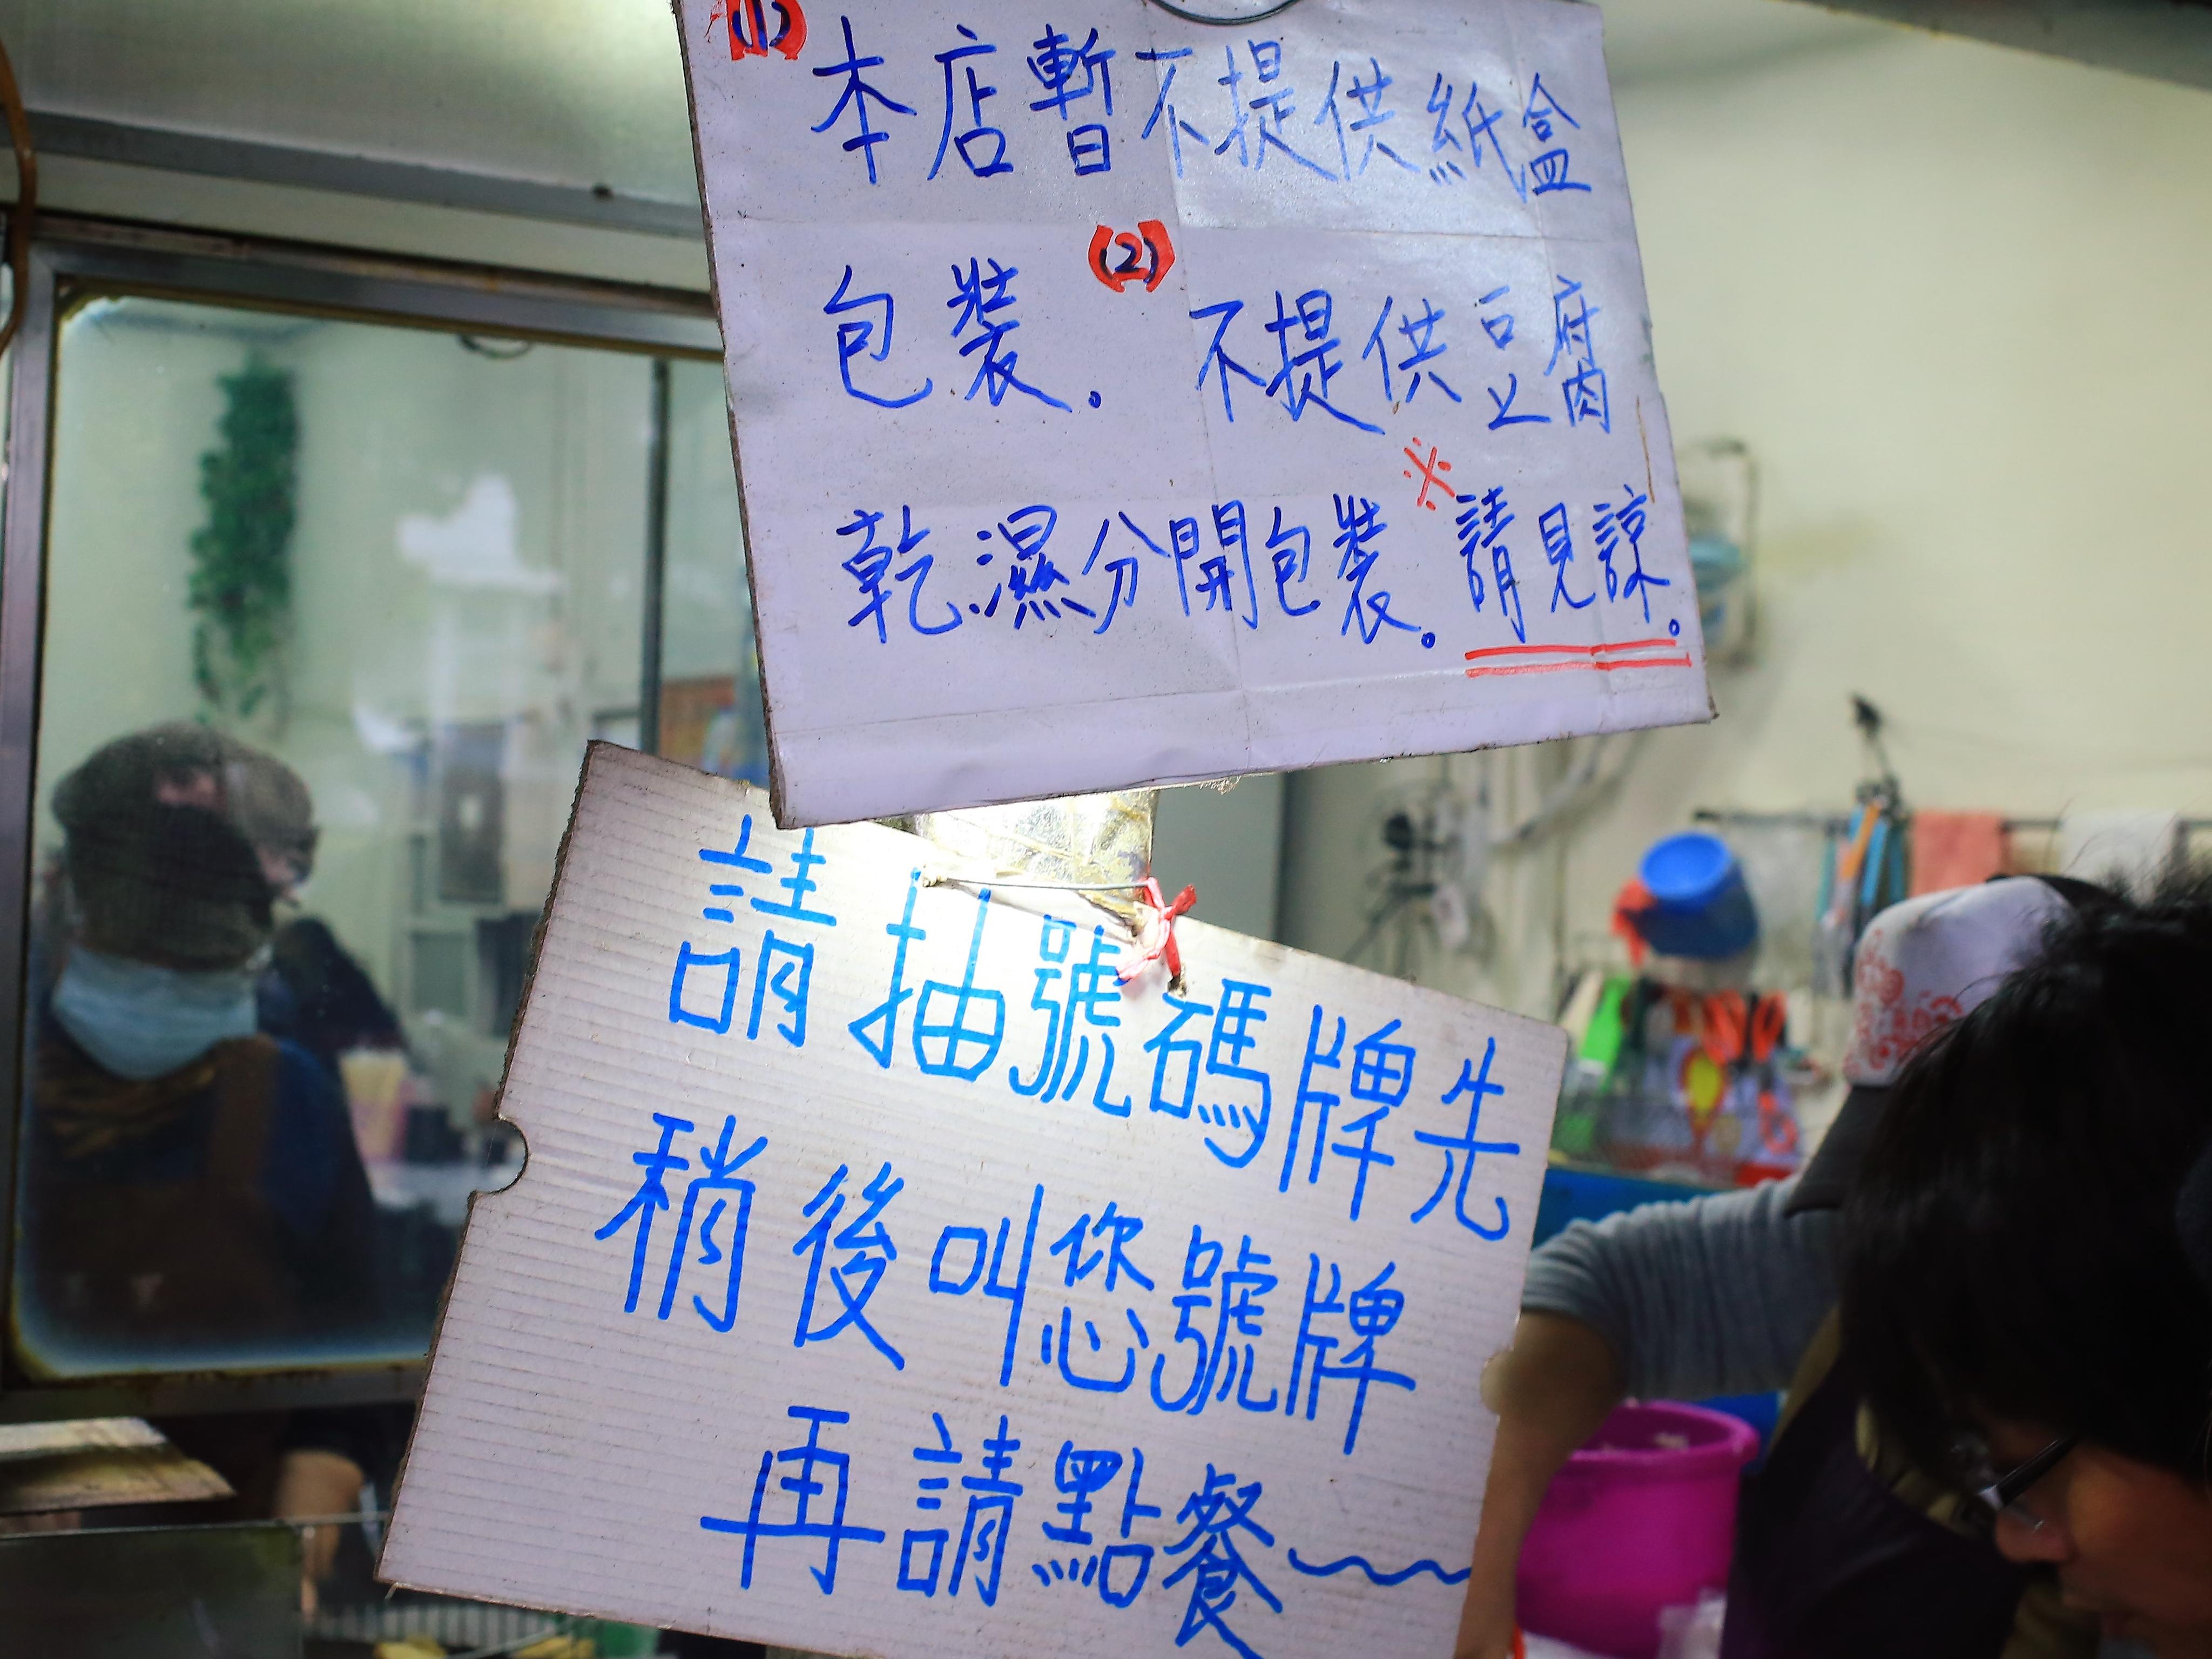 (1) 本店暫不提供紙盒
包裝。 (2) 不提供豆腐
乾濕分開包裝。※請見諒。
請抽號碼牌先
稍後叫您號牌
再請點餐～～